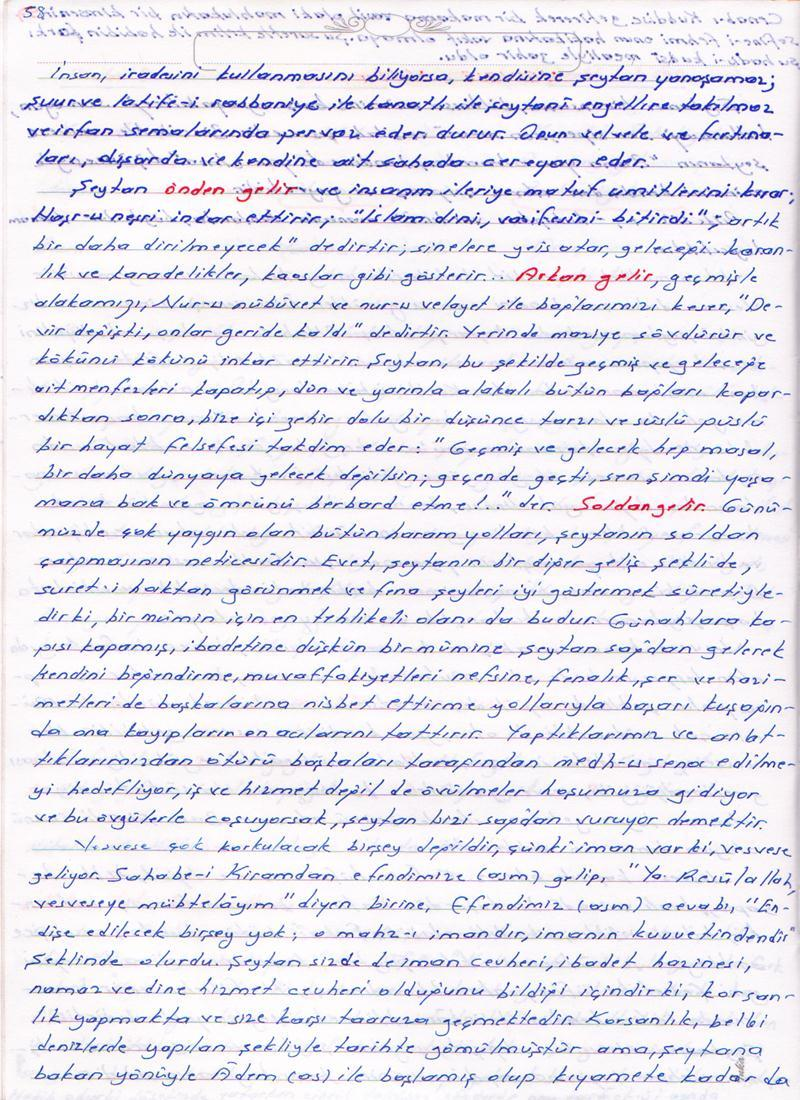 58
İnsan, iradesini kullanmasını biliyorsa, kendisine şeytan yanaşamaz;
şuur ve latife-i rabbaniye ile kanatlı ile şeytanî engellere takılmaz
ve irfan semalarında pervaz eder durur. Onun velvele ve fırtına-
ları, dışarda ve kendine ait sahada cereyan eder."
Şeytan önden gelir ve insanın ileriye matuf ümitlerini kırar;
Haşr-u neşri inkar ettirir; "İslam dini, vazifesini bitirdi"; artık
bir daha dirilmeyecek" dedirtir; sinelere yeis atar, geleceği karan-
lık ve karadelikler, kaoslar gibi gösterir... Arkan gelir, geçmişle
alakamızı, Nur-u nübüvet ve nur-u velayet ile bağlarımızı keser, "De-
vir değişti, onlar geride kaldı" dedirtir. Yerinde maziye sövdürür ve
kökünü kökünü inkar ettirir. Şeytan, bu şekilde geçmiş ve geleceğe
ait menfezleri kapatıp, dün ve yarınla alakalı bütün bağları kopar-
dıktan sonra, bize içi zehir dolu bir düşünce tarzı ve süslü püslü
bir hayat felsefesi takdim eder: "Geçmiş ve gelecek hep masal,
bir daha dünyaya gelecek değilsin; geçende geçti, sen şimdi yaşa-
mana bak ve ömrünü berbard etme!.." der. Soldan gelir. Günü-
müzde çok yaygın olan bütün haram yolları, şeytanın soldan
çarpmasının neticesidir. Evet, şeytanın bir diğer geliş şekli de,
suret-i haktan görünmek ve fena şeyleri iyi göstermek sûretiyle-
dir ki, bir mümin için en tehlikeli olanı da budur. Günahlara ka-
pısı kapamış, ibadetine düşkün bir mümine şeytan sağdan gelerek
kendini beğendirme, muvaffakiyetleri nefsine, fenalık, şer ve hezi-
metleri de başkalarına nisbet ettirme yollarıyla başarı kuşağın-
da ona kayıpların en acılarını tattırır. Yaptıklarımız ve anlat-
tıklarımızdan ötürü başkaları tarafından medh-u sena edilme-
yi hedefliyor, iş ve hizmet değil de övülmeler hoşumuza gidiyor
ve bu övgülerle coşuyorsak, şeytan bizi sağdan vuruyor demektir.
Vesvese çok korkulacak birşey değildir, çünki iman var ki, vesvese
geliyor. Sahabe-i Kiramdan efendimize (asm) gelip, "Ya Resûlallah,
vesveseye mübtelâyım" diyen birine, Efendimiz (asm) cevabı, "En-
dişe edilecek birşey yok; o mahz-ı imandır, imanın kuvvetindendir"
şeklinde olurdu. Şeytan sizde de iman cevheri, ibadet hazinesi,
namaz ve dine hizmet cevheri olduğunu bildiği içindir ki, korsan-
lık yapmakta ve size karşı taaruza geçmektedir. Korsanlık, belbi
denizlerde yapılan şekliyle tarihte gömülmüştür ama, şeytana
bakan yönüyle Âdem (as) ile başlamış olup kıyamete kadar da